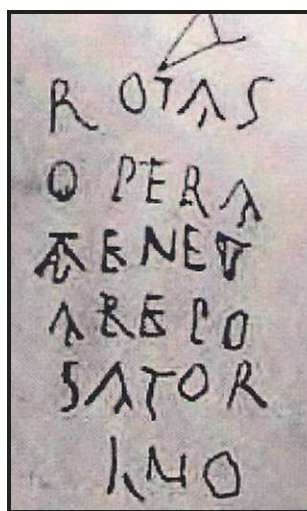 ROTAS
OPERA
TENET
AREPO
SATOR
ANO